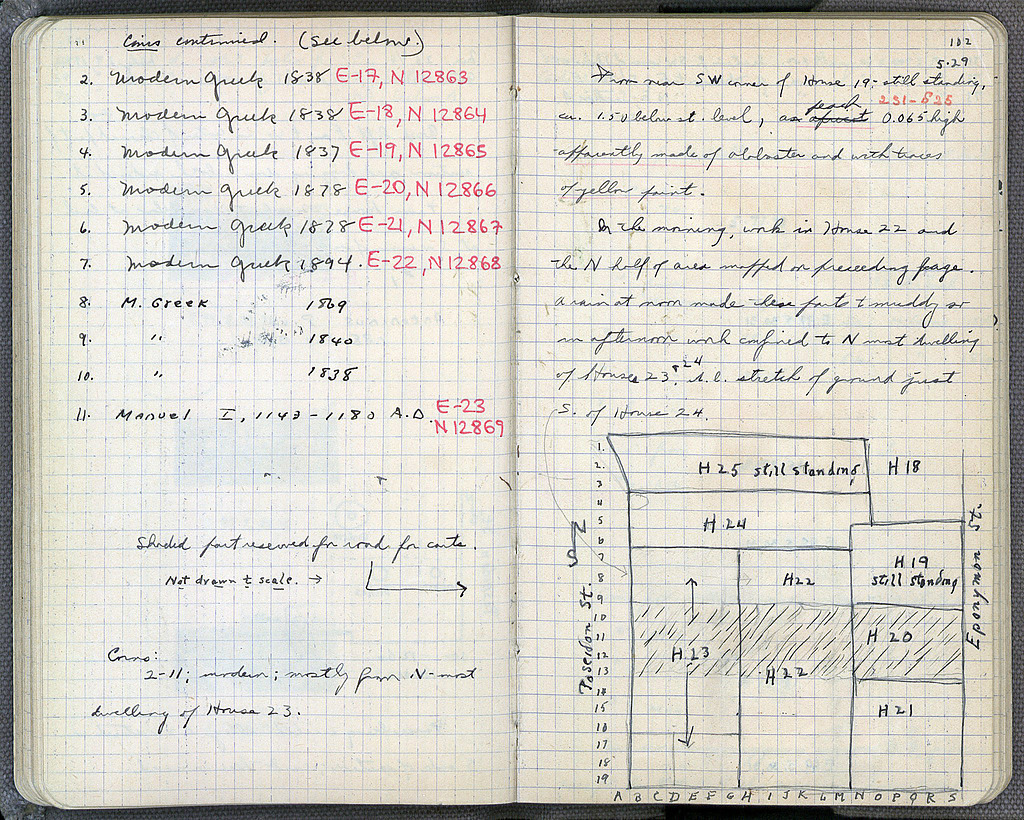 11 Coins continued. (see below.)
2. Modern Greek 1838 E-17, N 12863
3. Modern Greek 1838 E-18, N 12864
4. Modern Greek 1837 E-19, N 12865
5. Modern Greek 1878 E-20, N 12866
6. Modern Greek 1828 E-21, N 12867
7. Modern Greek 1894. E-22, N 12868
8. M. Greek 1869
9. " 1840
10. " 1838
11. Manuel I, 1143-1180 A.D. E-23
N 12869
Shaded part reserved for road for carts.
Not drawn t scale. →
Coins:
2-11; modern; mostly from N-most
dwelling of House 23.
102
5.29
From near SW corner of House 19: still standing,
peach 231-S25
ca. 1.50 below st. level, a 0.065 high
apparently made of alabaster and with traces
of yellow paint.
In the morning, work in House 22 and
the N half of area mapped on preceeding page.
A rain at noon made these parts t muddy so
in afternoon work confined to N most dwelling
of House 23, + 24 i.e. stretch of ground just
S. of House 24.
1.
2.
3
4
5
6
7
8
9
10
11
12
13
14
15
16
17
18
19
H 25 still standing
H 18
H 24
N
S
H 19
still standing
H 22
H 20
H 23
H 22
H 21
Poseidon St.
Eponymon St.
A B C D E F G H I J K L M N O P Q R S